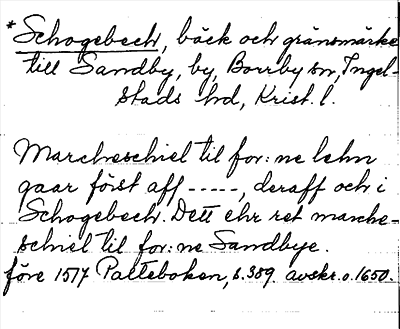 *Schogebech, bäck och gränsmärke
till Sandby, by, Borrby sn, Ingel-
stads hd, Krist. l.
Marcheschiel til for:ne lehn
gaar först aff -----, deraff och i
Schogebech. Dett ehr ret marche-
schiel til for:ne Sandbye.
före 1517 Palteboken, s. 389. avskr. o. 1650.